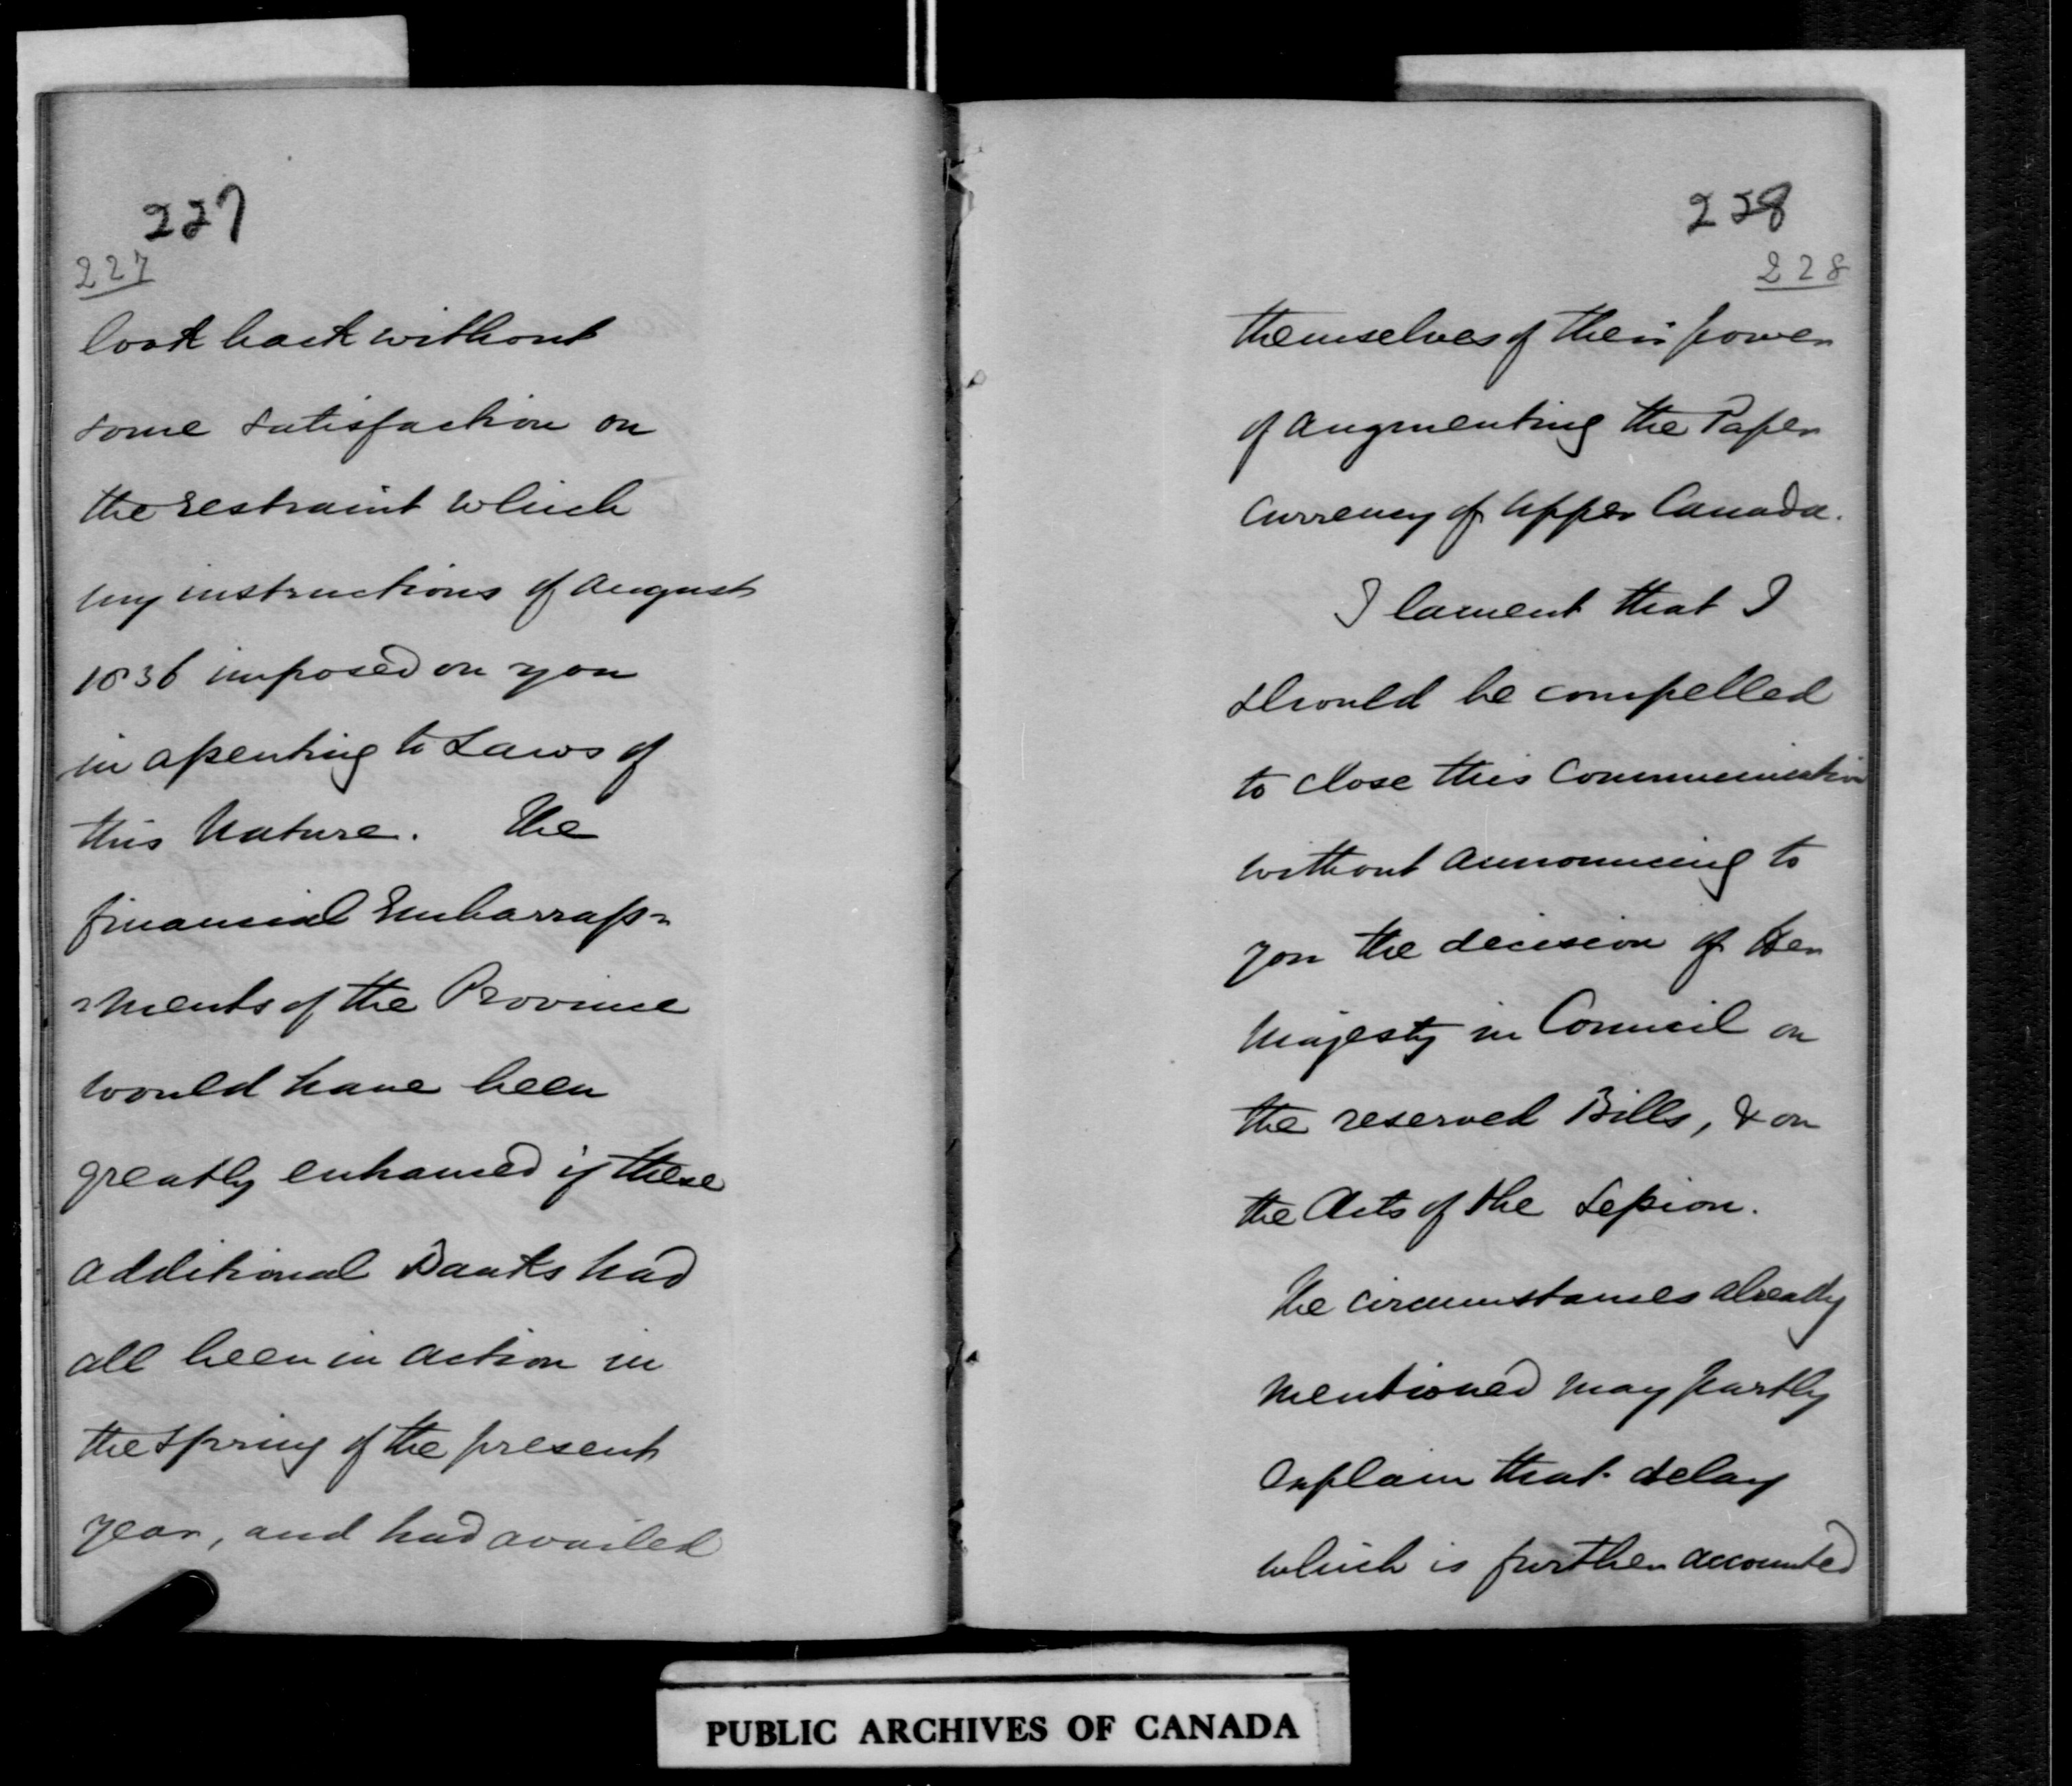 227
227
look back without
some satisfaction on
the restraint which
my instructions of August
1836 imposed on you
in assenting to Laws of
this Nature. The
financial Embarrass=
=ments of the Province
would have been
greatly enhanced if these
additional Banks had
all been in action in
the Spring of the present
year, and had availed
228
228
themselves of their power
of augmenting the Paper
Currency of Upper Canada.
I lament that I
should be compelled
to close this Communication
without announcing to
you the decision of Her
Majesty in Council on
the reserved Bills, & on
the Acts of the Session.
The circumstances already
mentioned may partly
explain that delay
which is further accounted
PUBLIC ARCHIVES OF CANADA